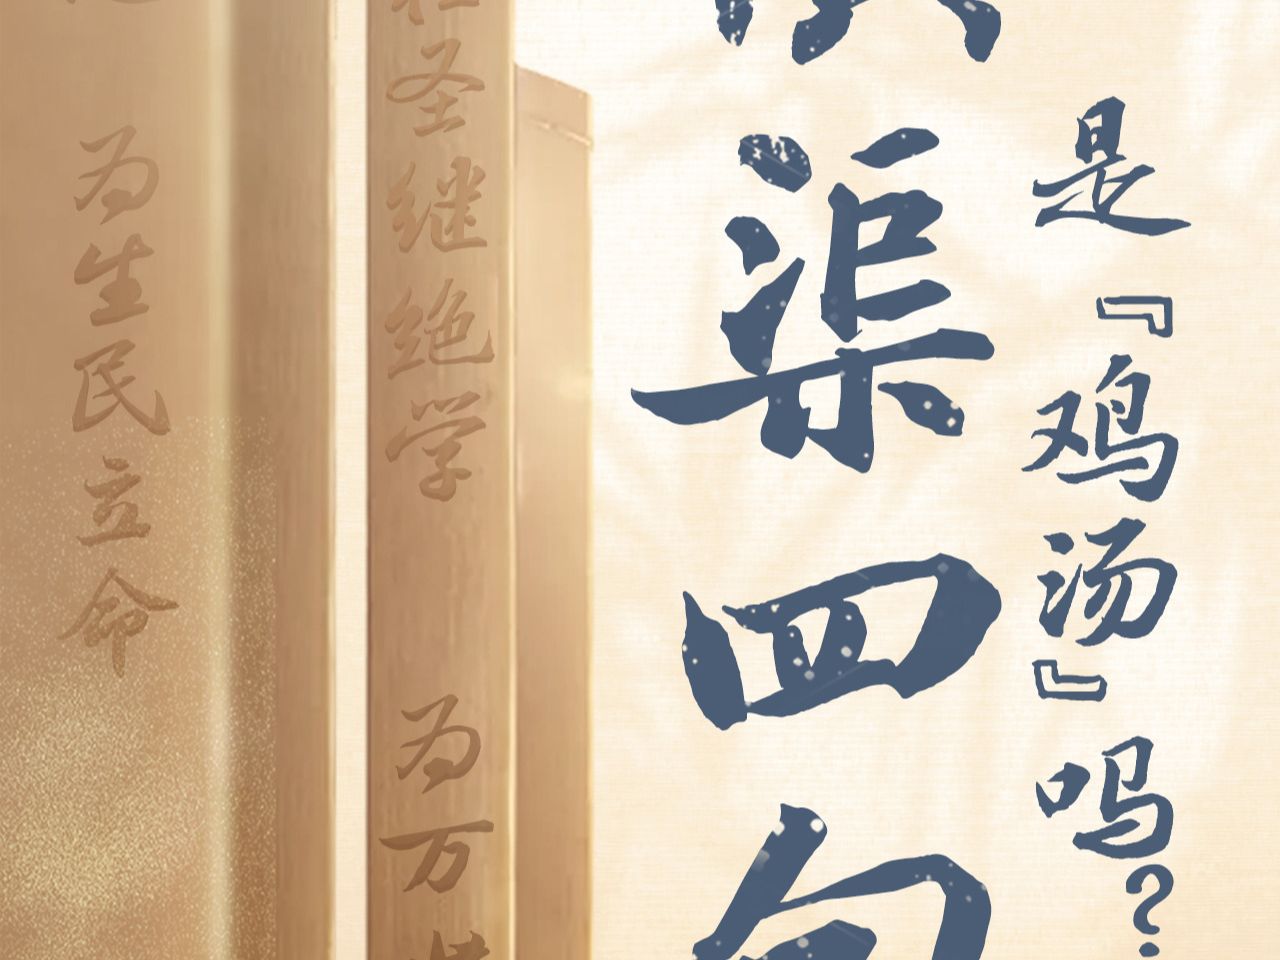 为生民立命
圣继绝学
为万
渠四句
是『鸡汤』吗？